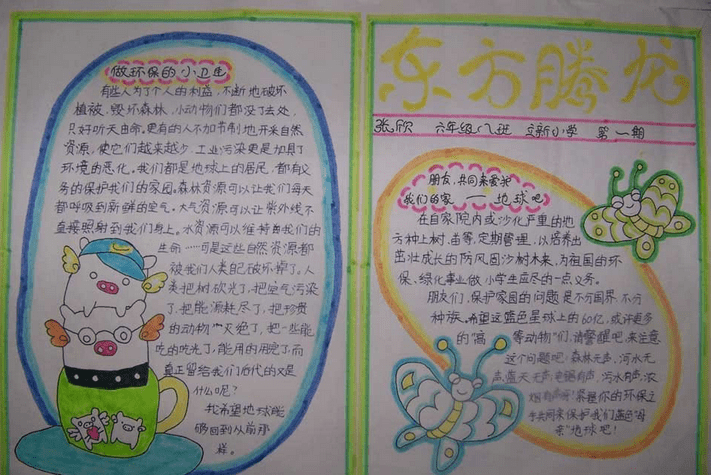 做环保的小卫生
有些人为了个人的利益,不断地破坏
植被,毁坏森林,小动物们都没了去处,
只好听天由命。更有的人不加节制地开来自然
资源,使它们越来越少。工业污染更是加具了
环境的恶化。我们都是地球上的居民,都有义
务的保护我们的家园。森林资源可以让我们每天
都呼吸到新鲜的空气。大气资源可以让紫外线不
直接照射到我们身上。水资源可以维持我们的
生命……可是这些自然资源都
被我们人类自己破坏掉了。人
类把树砍光了,把空气污染
了,把能源耗尽了,把珍贵
的动物灭绝了,把一些能
吃的吃光了,能用的用完了,而
真正留给我们后代的又是
什么呢?
我希望地球能
够回到从前那
样。
东方腾龙
张欣 六年级八班 立新小学 第一期
朋友,共同来爱我
我们的家——地球吧
在自家院内或沙化严重的地
方种上树、苗等,定期管理,以培养出
茁壮成长的防风固沙树木来,为祖国的环
保、绿化事业做小学生应尽的一点义务。
朋友们,保护家园的问题是不分国界,不分
种族。希望这蓝色星球上的60亿,或许更多
的"高等动物"们,请警醒吧,来注意
这个问题吧:森林无声,河水无
声,蓝天无声,电锯有声,污水有声,浓
烟有声啊!
你的环保之
手共同来保护我们蓝色"母
亲"地球吧!